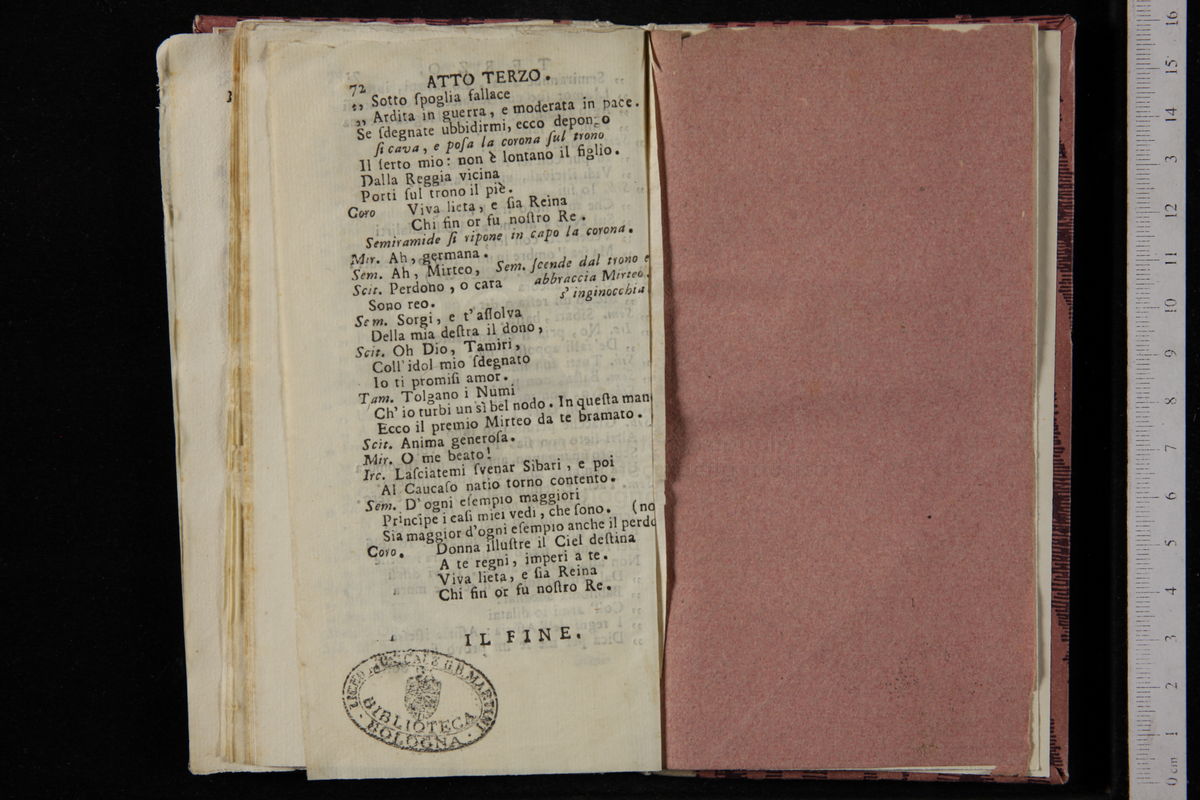 72 ATTO TERZO.
„ Sotto ſpoglia fallace
„ Ardita in guerra, e moderata in pace.
Se ſdegnate ubbidirmi, ecco depongo
ſi cava, e poſa la corona ſul trono
Il ſerto mio: non è lontano il figlio.
Dalla Reggia vicina
Porti ſul trono il piè.
Coro Viva lieta, e ſia Reina
Chi fin or fu noſtro Re.
Semiramide ſi ripone in capo la corona.
Mir. Ah, germana.
Sem. Ah, Mirteo, Sem. ſcende dal trono e
Scit. Perdono, o cara abbraccia Mirteo.
s' inginocchia
Sono reo.
Sem. Sorgi, e t'aſſolva
Della mia deſtra il dono,
Scit. Oh Dio, Tamiri,
Coll' idol mio ſdegnato
Io ti promiſi amor.
Tam. Tolgano i Numi
Ch' io turbi un sì bel nodo. In queſta man
Ecco il premio Mirteo da te bramato.
Scit. Anima generoſa.
Mir. O me beato!
Irc. Laſciatemi ſvenar Sibari, e poi
Al Caucaſo natio torno contento.
Sem. D' ogni eſempio maggiori
Principe i caſi miei vedi, che ſono. (no
Sia maggior d'ogni eſempio anche il perdo
Coro. Donna illuſtre il Ciel deſtina
A te regni, imperi a te.
Viva lieta, e ſia Reina
Chi fin or fu noſtro Re.
IL FINE.
LICEO MUSICALE G.B. MARTINI
BIBLIOTECA
BOLOGNA
0 cm 1 2 3 4 5 6 7 8 9 10 11 12 3 14 15 16